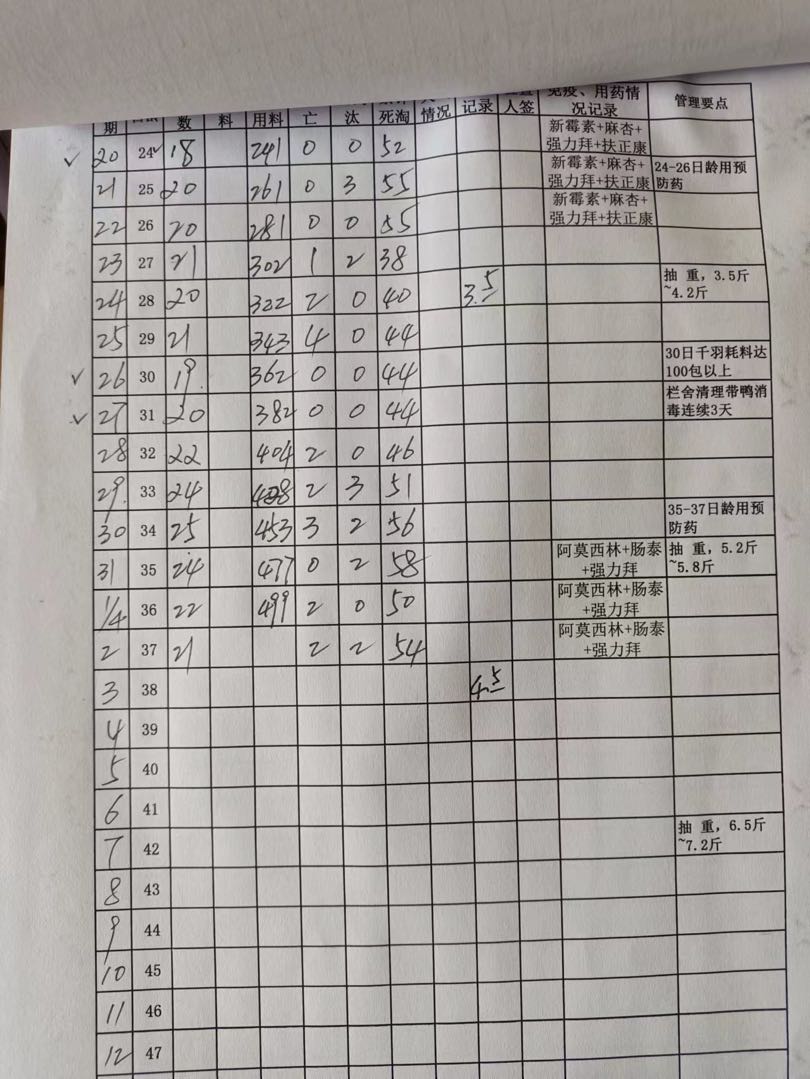 期 数 料 用料 亡 汰 死淘 情况 记录 人签 况记录 管理要点
免疫、用药情
20 24 18 241 0 0 52 新霉素+麻杏+
强力拜+扶正康
21 25 20 261 0 3 55 新霉素+麻杏+ 24-26日龄用预
强力拜+扶正康 防药
22 26 20 281 0 0 55 新霉素+麻杏+
强力拜+扶正康
23 27 21 302 1 2 38
24 28 20 322 2 0 40 3.5 抽 重，3.5斤
~4.2斤
25 29 21 343 4 0 44
26 30 19. 362 0 0 44 30日千羽耗料达
100包以上
27 31 20 382 0 0 44 栏舍清理带鸭消
毒连续3天
28 32 22 404 2 0 46
29. 33 24 428 2 3 51
30 34 25 453 3 2 56 35-37日龄用预
防药
31 35 24 477 0 2 58 阿莫西林+肠泰 抽 重，5.2斤
+强力拜 ~5.8斤
1/4 36 22 499 2 0 50 阿莫西林+肠泰
+强力拜
2 37 21 2 2 54 阿莫西林+肠泰
+强力拜
3 38 4.5
4 39
5 40
6 41
7 42 抽 重，6.5斤
~7.2斤
8 43
9 44
10 45
11 46
12 47